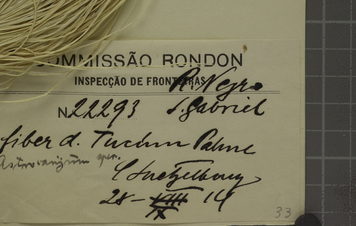 COMMISSÃO RONDON
INSPECÇÃO DE FRONTEIRAS
R. Negro
N 22293 S. Gabriel
fiber d. Tucum Palme
Astrocaryum spec.
Luetzelburg
28-VIII 14
IX
33